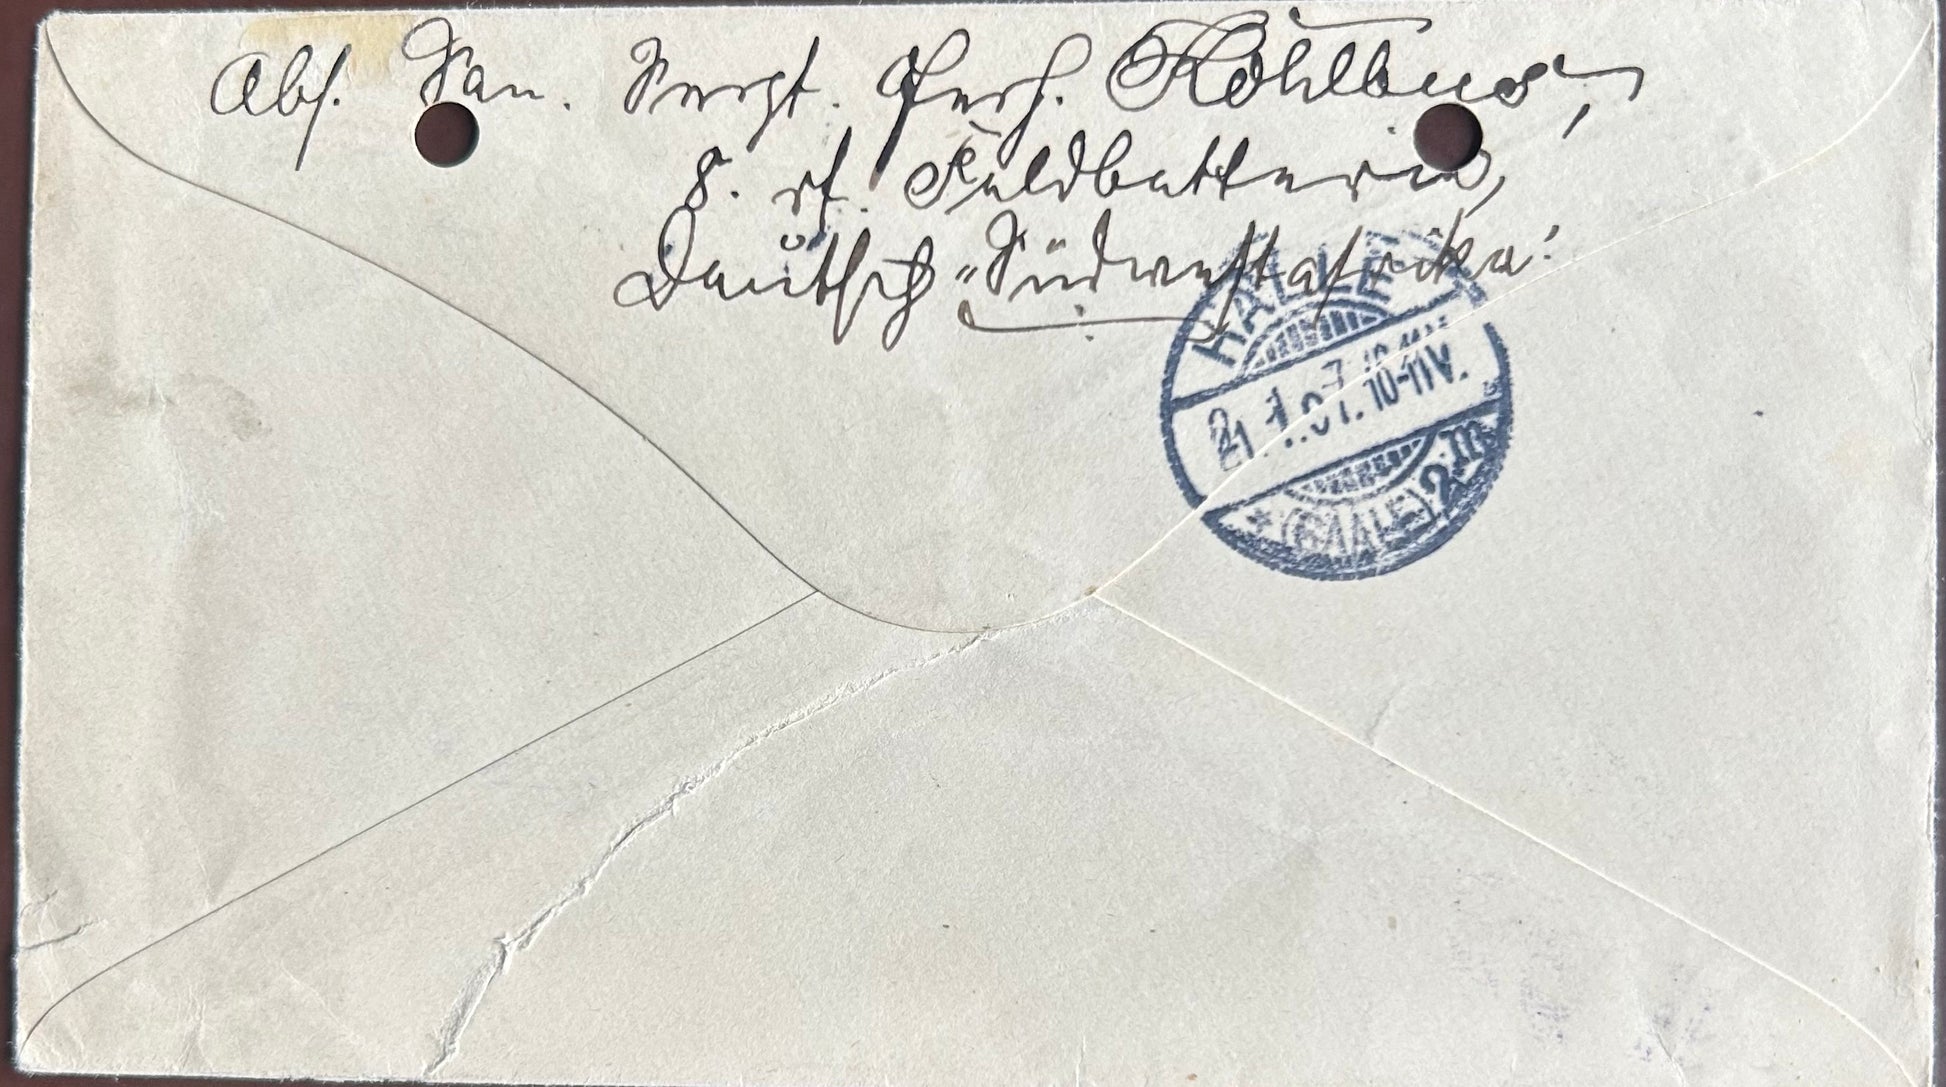 Abs. San. Sergt. Ferd. Kohlbus,
8. rf. Feldbatterie,
Deutsch-Südwestafrika.
HALLE
21.1.07.10-11V.
* (SAALE) 2m